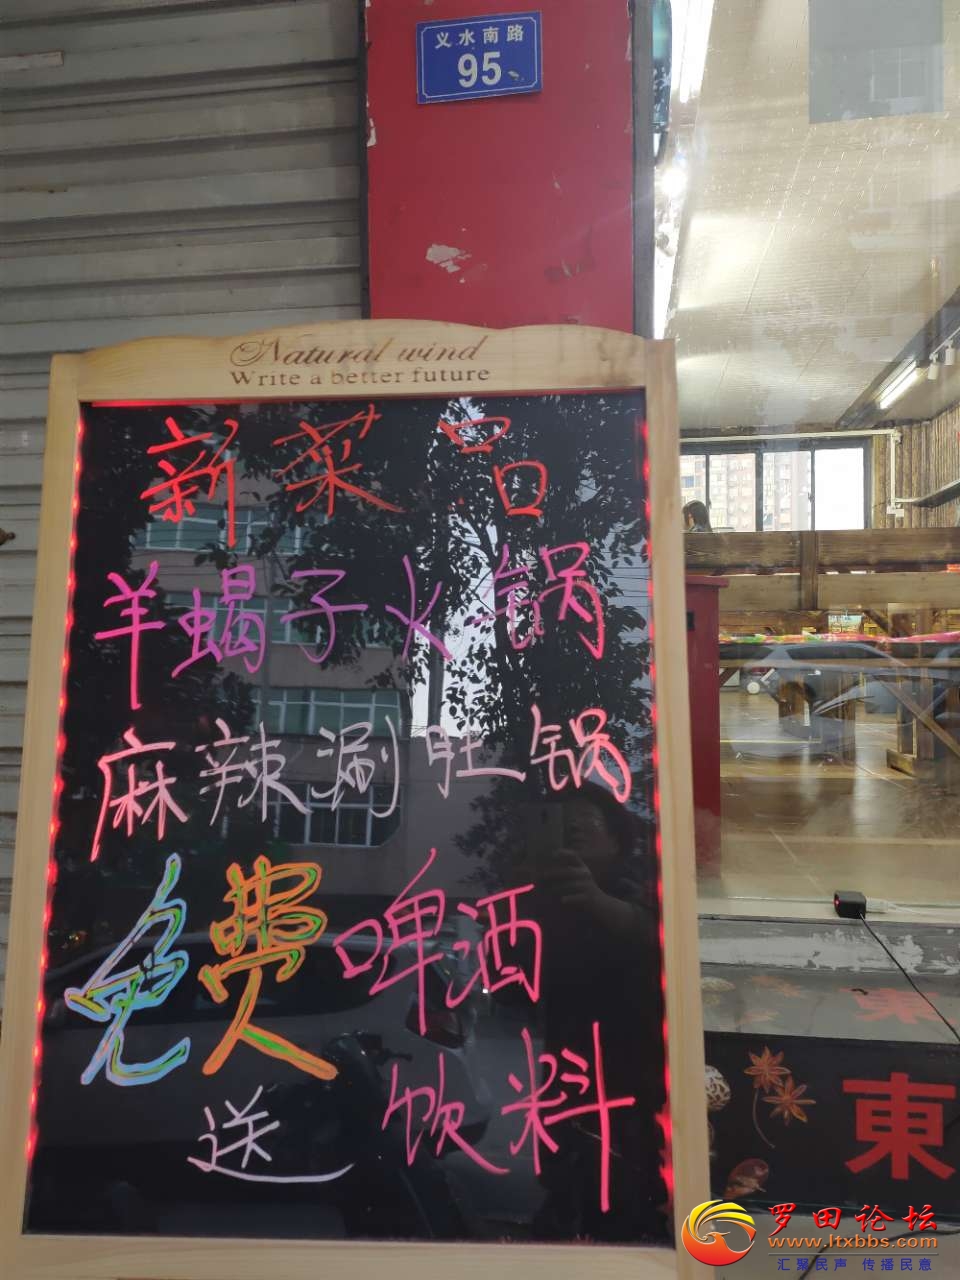 义水南路
95
Natural wind
Write a better future
新菜品
羊蝎子火锅
麻辣涮肚锅
免费啤酒
送饮料
東
東
罗田论坛
www.ltxbbs.com
汇聚民声 传播民意